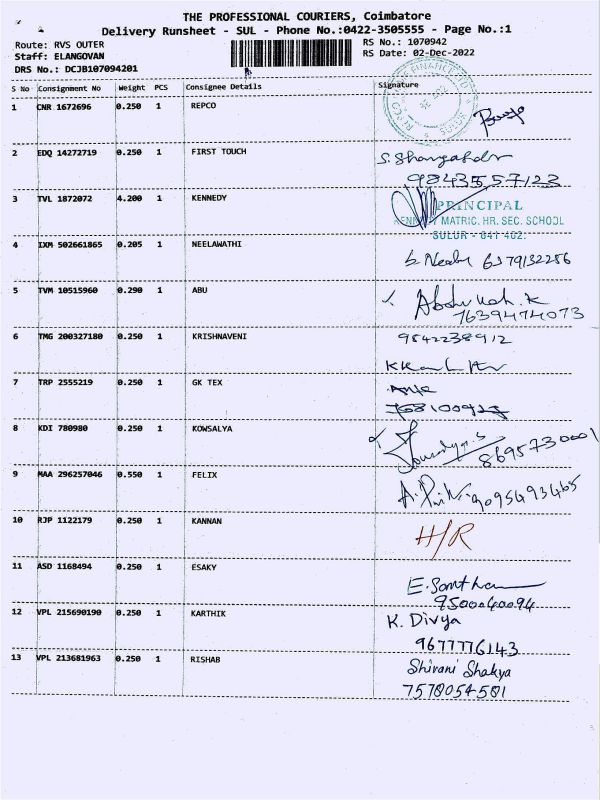 THE PROFESSIONAL COURIERS, Coimbatore
Delivery Runsheet - SUL - Phone No.:0422-3505555 - Page No.:1
Route: RVS OUTER RS No.: 1070942
Staff: ELANGOVAN RS Date: 02-Dec-2022
DRS No.: DCJB107094201
S No Consignment No Weight PCS Consignee Details Signature
1 CNR 1672696 0.250 1 REPCO
2 EDQ 14272719 0.250 1 FIRST TOUCH
9843557123
3 TVL 1872072 4.200 1 KENNEDY
PRINCIPAL
MATRIC. HR. SEC. SCHOOL
SULUR - 641 402.
4 IXM 502661865 0.205 1 NEELAWATHI
6379132256
5 TVM 10515960 0.290 1 ABU
7639474073
6 TMG 200327180 0.250 1 KRISHNAVENI
9842238912
7 TRP 2555219 0.250 1 GK TEX
8 KDI 780980 0.250 1 KOWSALYA
8695730001
9 MAA 296257046 0.550 1 FELIX
9095493465
10 RJP 1122179 0.250 1 KANNAN H/R
11 ASD 1168494 0.250 1 ESAKY
9500040094
12 VPL 215690190 0.250 1 KARTHIK K. Divya
9677776143
13 VPL 213681963 0.250 1 RISHAB Shivani Shakya
7578054581